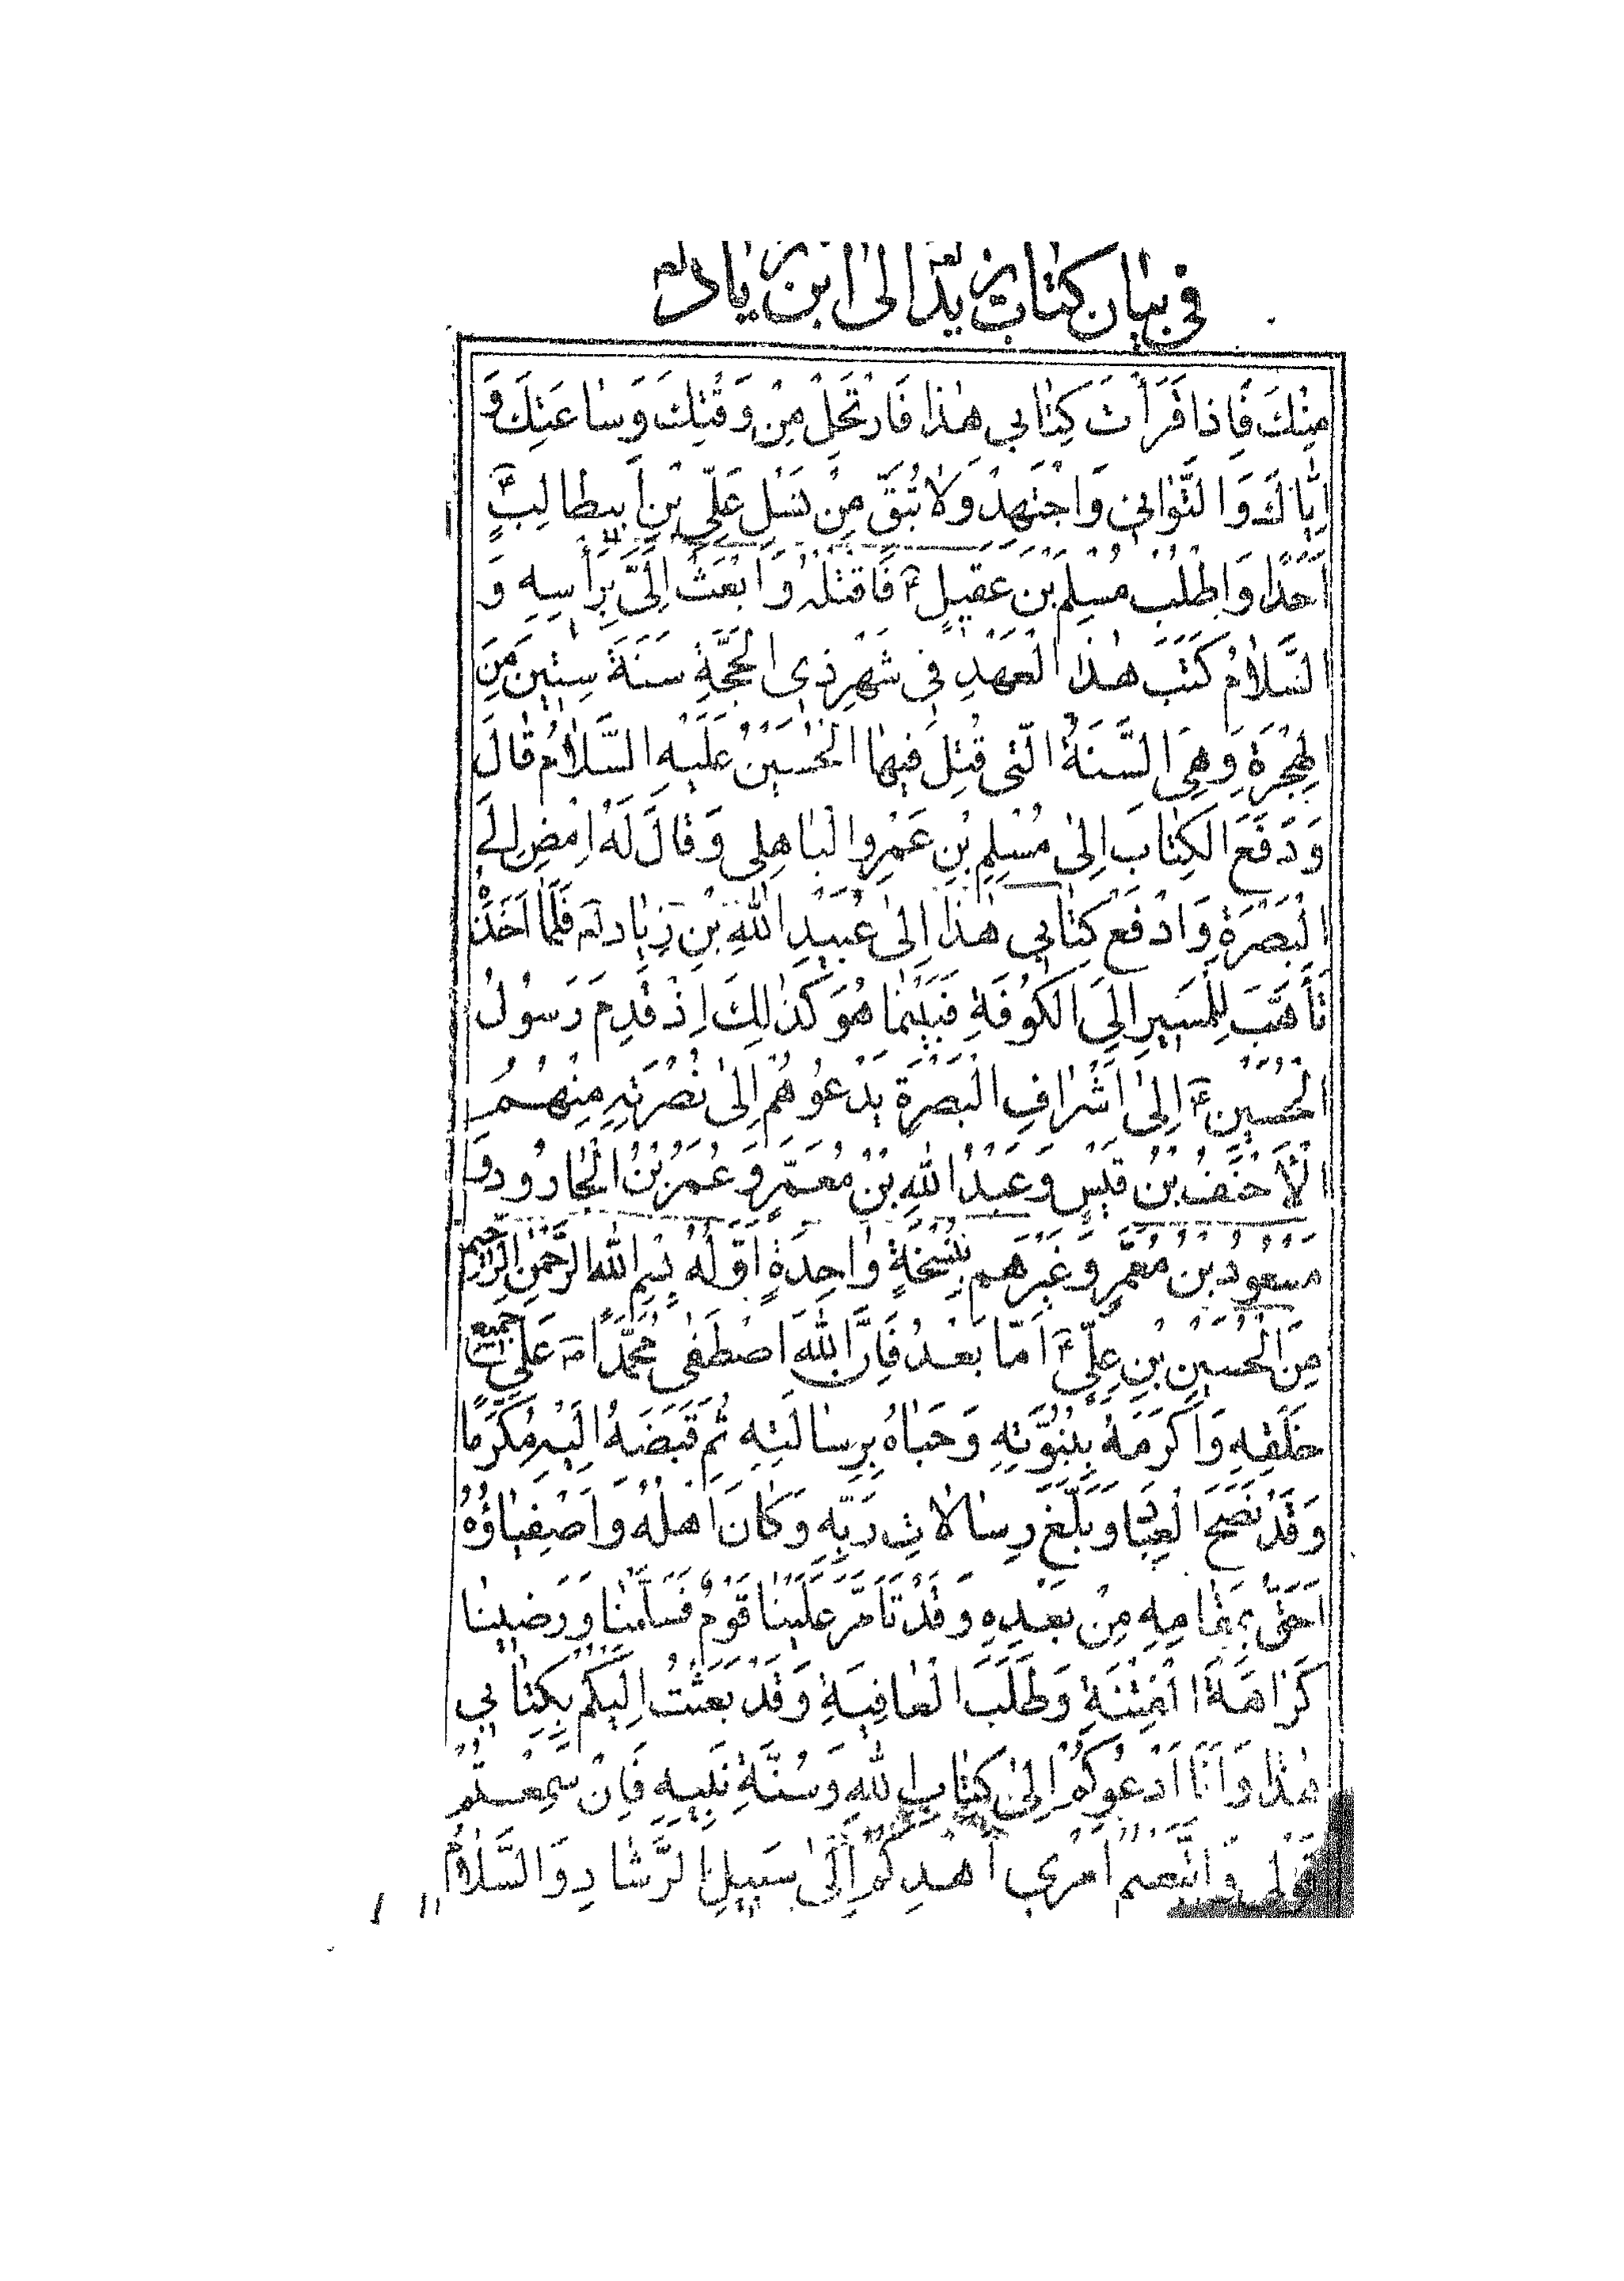 في بيان كتاب يزيد لع الى ابن زياد لعـ
مِنْكَ فَاِذا قَرَأْتَ كِتٰابي هٰذا فَارْتَحِلْ مِنْ وَقْتِكَ وَسٰاعَتِكَ وَ
اِيّٰاكَ وَالتَّوٰاني وَاجْتَهِدْ وَلاٰ تُبْقِ مِنْ نَسْلِ عَلِيِّ بْنِ اَبيطٰالِبٍ؏
اَحَدًا وَاطْلُبْ مُسْلِمَ بْنَ عَقيلٍ؏ فَاقْتُلْهُ وَابْعَثْ اِلَيَّ بِرَأْسِهِ وَ
السَّلاٰمُ كَتَبَ هٰذَا الْعَهْدِ في شَهْرِ ذِي الْحَجَّةِ سَنَةَ سِتّينَ مِنَ
الْهِجْرَةِ وَهِيَ السَّنَةُ الَّتي قُتِلَ فيهَا الْحُسَيْنُ عَلَيْهِ السَّلاٰمُ قٰالَ
وَدَفَعَ الْكِتٰابَ اِلىٰ مُسْلِمِ بْنِ عَمْرِو الْبٰاهِلي وَقٰالَ لَهُ اِمْضِ اِلَى
الْبَصْرَةِ وَادْفَعْ كِتٰابي هٰذٰا اِلىٰ عُبَيْدِ اللّٰهِ بْنِ زِيٰاد لعـ فَلَمّٰا اَخَذَهُ
تَأَهَّبَ لِلْمَسيرِ اِلَى الْكُوفَةِ فَبَيْنَمٰا هُوَ كَذٰلِكَ اِذْ قَدِمَ رَسُولُ
الْحُسَيْنِ؏ اِلىٰ اَشْرٰافِ الْبَصْرَةِ يَدْعُوهُمْ اِلىٰ نُصْرَتِهِ مِنْهُمُ
الْاَحْنَفُ بْنُ قَيْسٍ وَعَبْدُ اللّٰهِ بْنُ مُعَمَّرٍ وَعُمَرُ بْنُ الْجٰارُودِ وَ
مَسْعُودُ بْنُ مُعَمَّرٍ وَغَيْرَهُمْ بِنُسْخَةٍ وٰاحِدَةٍ اَوَّلُهُ بِسْمِ اللّٰهِ الرَّحْمٰنِ الرَّحيمِ
مِنَ الْحُسَيْنِ بْنِ عَلِيٍّ؏ اَمّٰا بَعْدُ فَاِنَّ اللّٰهَ اصْطَفىٰ مُحَمَّدًا ص عَلىٰ جَميعِ
خَلْقِهِ وَاَكْرَمَهُ بِنُبُوَّتِهِ وَحَبٰاهُ بِرِسٰالَتِهِ ثُمَّ قَبَضَهُ اِلَيْهِ مُكَرَّمًا
وَقَدْ نَصَحَ الْعِبٰادَ وَبَلَّغَ رِسٰالاٰتِ رَبِّهِ وَكٰانَ اَهْلُهُ وَاَصْفِيٰاؤُهُ
اَحَقُّ بِمَقٰامِهِ مِنْ بَعْدِهِ وَقَدْ تَأَمَّرَ عَلَيْنٰا قَوْمٌ فَسَلَّمْنٰا وَرَضينٰا
كَرٰاهَةَ الْفِتْنَةِ وَطَلَبَ الْعٰافِيَةِ وَقَدْ بَعَثْتُ اِلَيْكُمْ بِكِتٰابي
هٰذٰا وَاَنَا اَدْعُوكُمْ اِلىٰ كِتٰابِ اللّٰهِ وَسُنَّةِ نَبِيِّهِ فَاِنْ سَمِعْتُمْ
قَوْلي وَاتَّبَعْتُمْ اَمْري اَهْدِكُمْ اِلىٰ سَبيلِ الرَّشٰادِ وَالسَّلاٰمُ